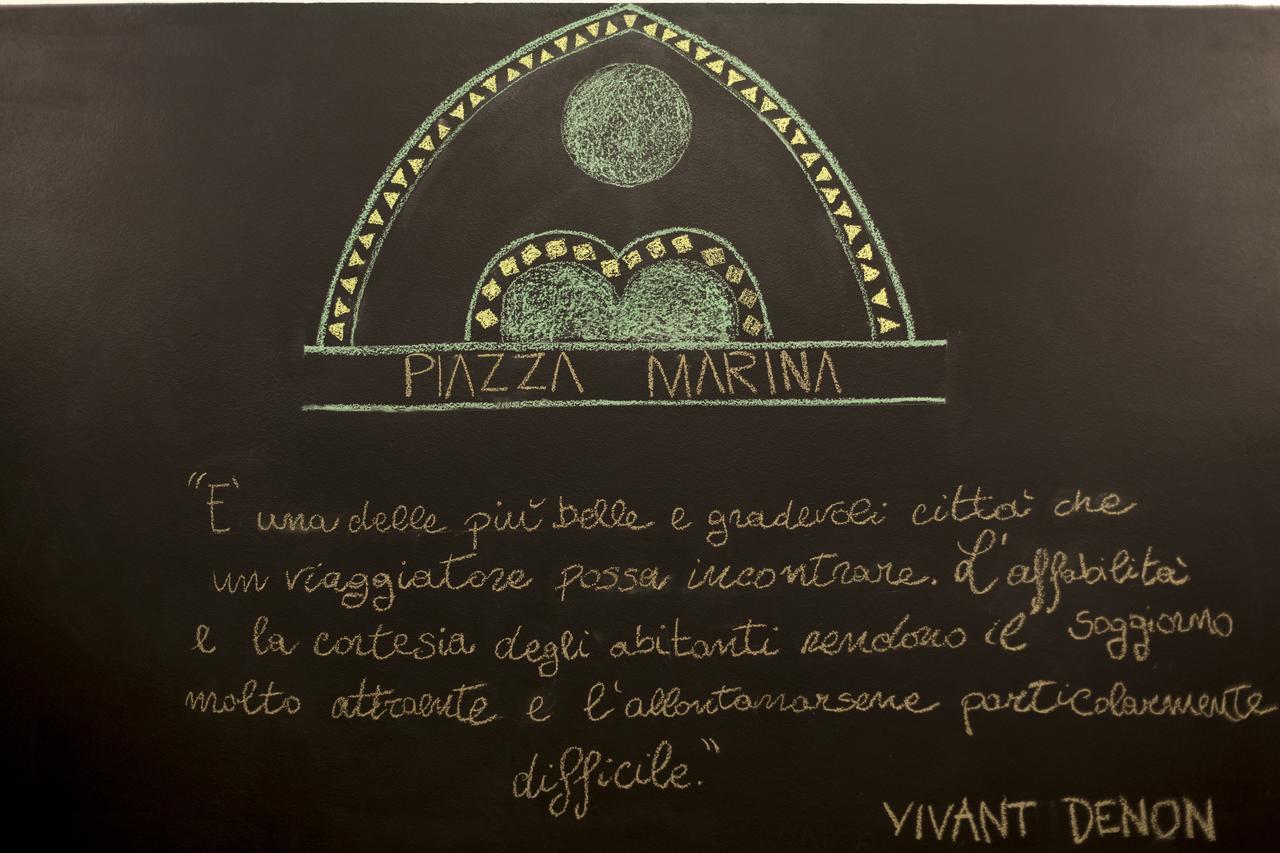 PIAZZA MARINA
"E' una delle più belle e gradevoli città che
un viaggiatore possa incontrare. L'affabilità
e la cortesia degli abitanti rendono il soggiorno
molto attraente e l'allontanarsene particolarmente
difficile."
VIVANT DENON